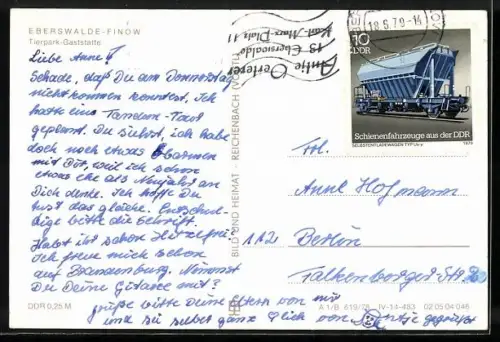 EBERSWALDE-FINOW
Tierpark-Gaststätte
Liebe Anne!
Schade, daß Du am Donnerstag
nicht kommen konntest. Ich
hatte eine Tandem-Tour
geplant. Du siehst, ich habe
doch noch etwas Erbarmen
mit Dir, weil ich schon
etwas eher als Neujahr an
Dich denke. Ich hoffe Du
tust das gleiche. Entschul-
dige bitte die Schrift.
Habt ihr schon Hitzefrei?
Ich freue mich schon
auf Brandenburg. Nimmst
Du Deine Gitarre mit?
grüße bitte Deine Eltern von mir
und sei selbst ganz lieb von Antje gegrüßt
DDR 0,25 M
BILD UND HEIMAT · REICHENBACH (VOGTL)
Antje
13 Eberswalde
Karl-Marx-Platz 11
18.6.79-14
10
DDR
Schienenfahrzeuge aus der DDR
SELBSTENTLADEWAGEN TYP Us-y
1979
Frl.
Anne Hofmann
112 Berlin
Falkenberger Str.
A 1/B 619/78 IV-14-483 02 05 04 046